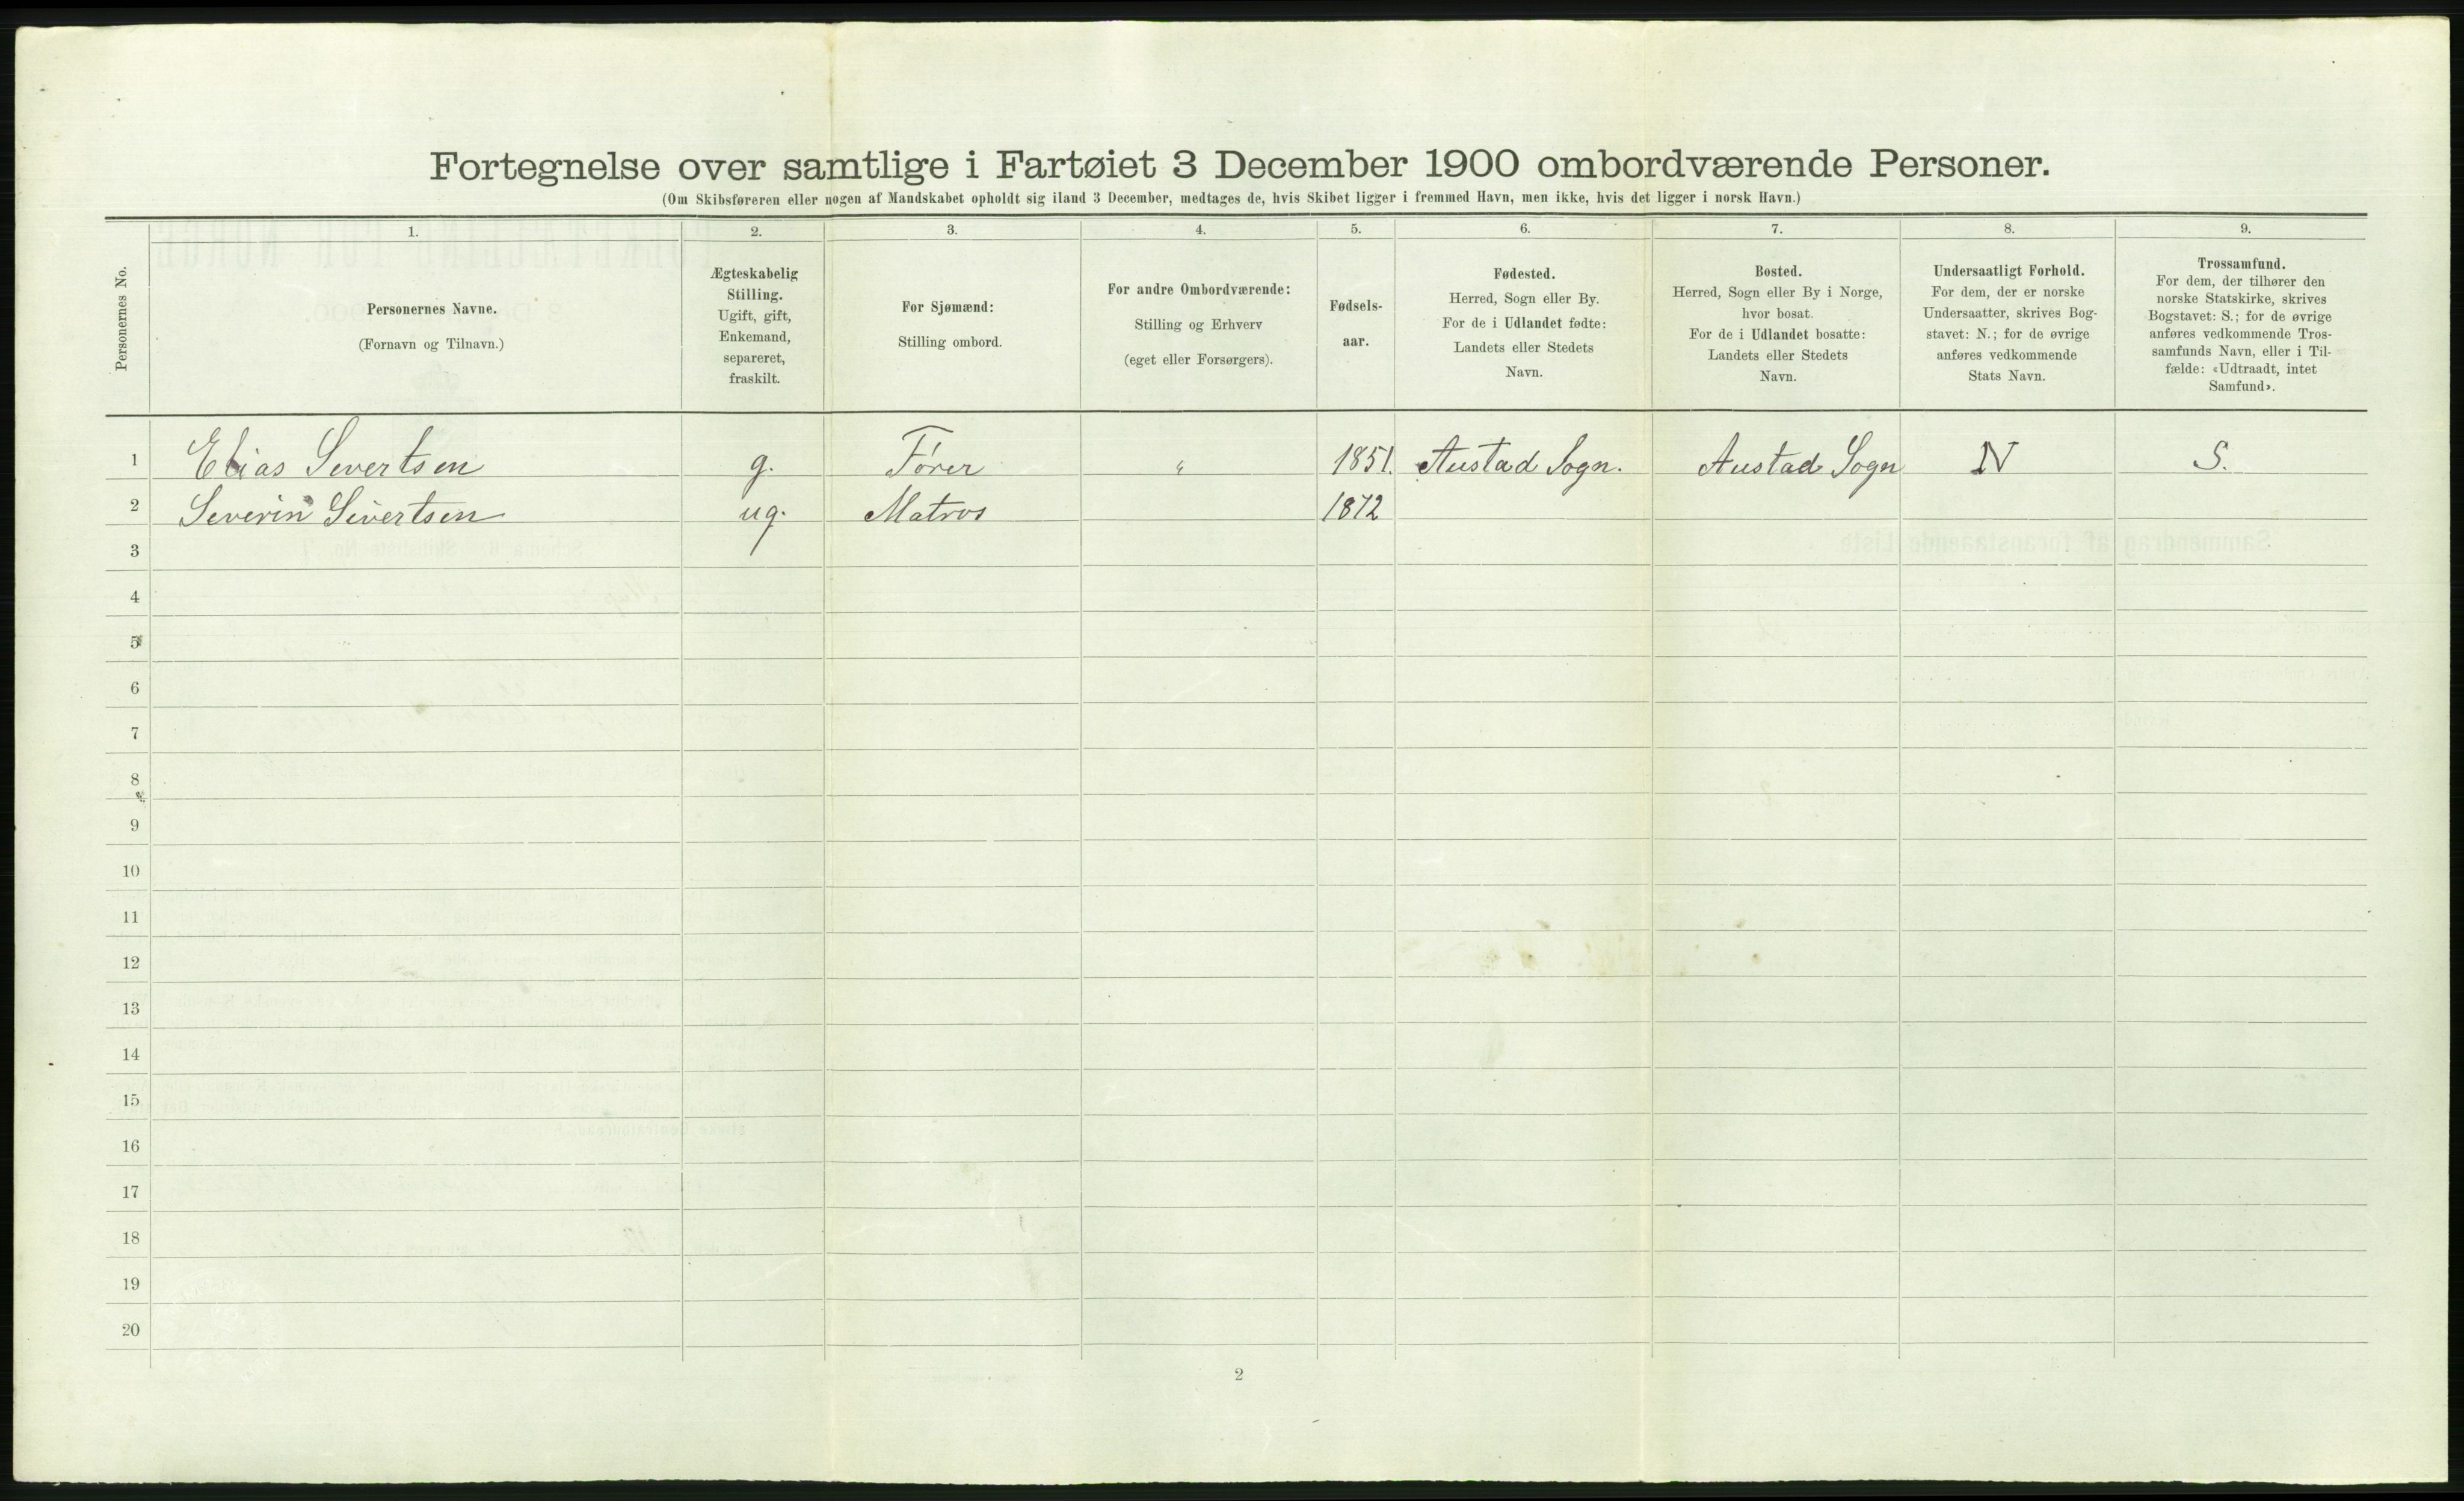 Fortegnelse over samtlige i Fartøiet 3 December 1900 ombordværende Personer.
(Om Skibsføreren eller nogen af Mandskabet opholdt sig iland 3 December, medtages de, hvis Skibet ligger i fremmed Havn, men ikke, hvis det ligger i norsk Havn.)
Personernes No.
1.
Personernes Navne.
(Fornavn og Tilnavn.)
2.
Ægteskabelig
Stilling.
Ugift, gift,
Enkemand,
separeret,
fraskilt.
3.
For Sjømænd:
Stilling ombord.
4.
For andre Ombordværende:
Stilling og Erhverv
(eget eller Forsørgers).
5.
Fødsels-
aar.
6.
Fødested.
Herred, Sogn eller By.
For de i Udlandet fødte:
Landets eller Stedets
Navn.
7.
Bosted.
Herred, Sogn eller By i Norge,
hvor bosat.
For de i Udlandet bosatte:
Landets eller Stedets
Navn.
8.
Undersaatligt Forhold.
For dem, der er norske
Undersaatter, skrives Bog-
stavet: N.; for de øvrige
anføres vedkommende
Stats Navn.
9.
Trossamfund.
For dem, der tilhører den
norske Statskirke, skrives
Bogstavet: S.; for de øvrige
anføres vedkommende Tros-
samfunds Navn, eller i Til-
fælde: «Udtraadt, intet
Samfund».
1 Elias Severtsen g. Fører " 1851. Austad Sogn. Austad Sogn N S.
2 Severin Sivertsen ug. Matros 1872
3
4
5
6
7
8
9
10
11
12
13
14
15
16
17
18
19
20
2